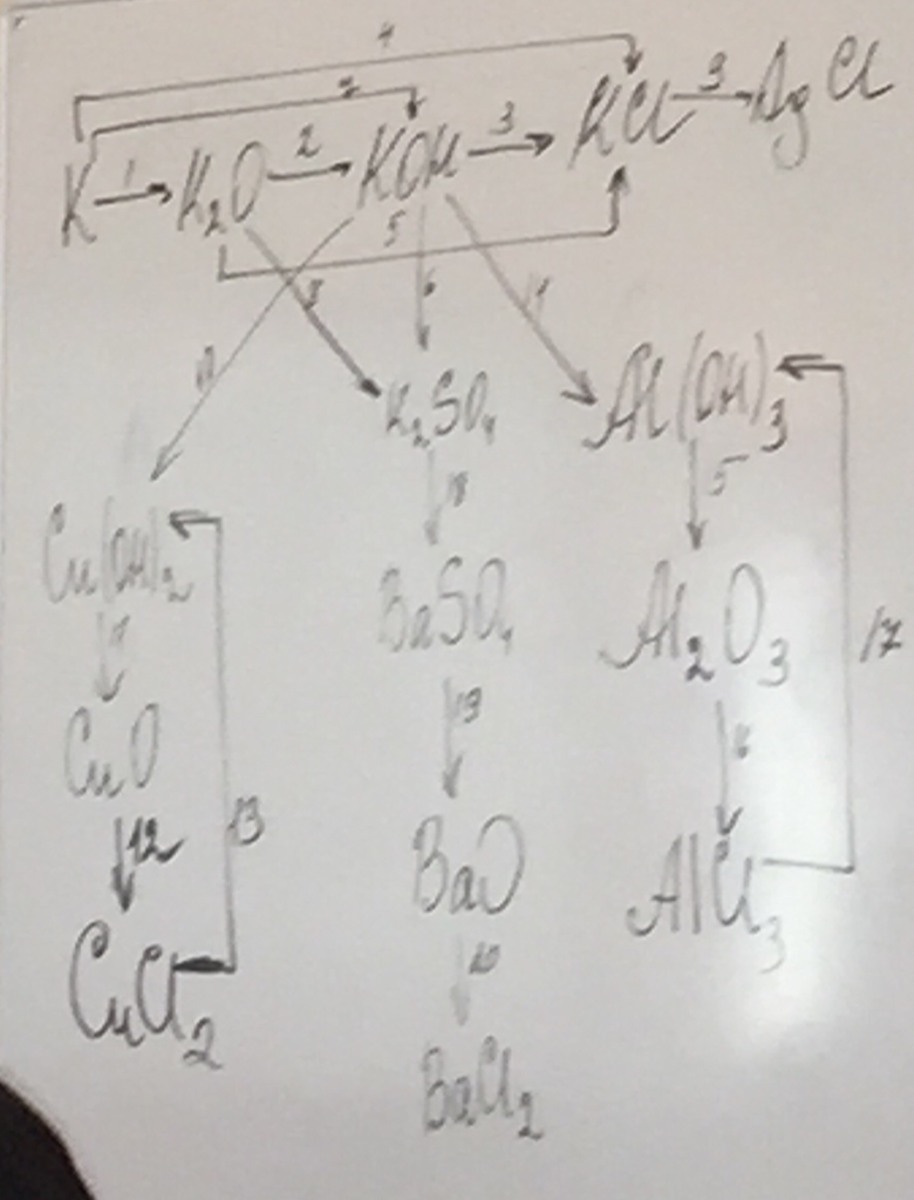 4
7
K 1 K₂O 2 KOH 3 KCl 9 AgCl
5
8 6 14
11
K₂SO₄ Al(OH)₃
18 5
Cu(OH)₂
BaSO₄ Al₂O₃ 17
CuO 19
12 13
BaO AlCl₃
CuCl₂ 20
BaCl₂